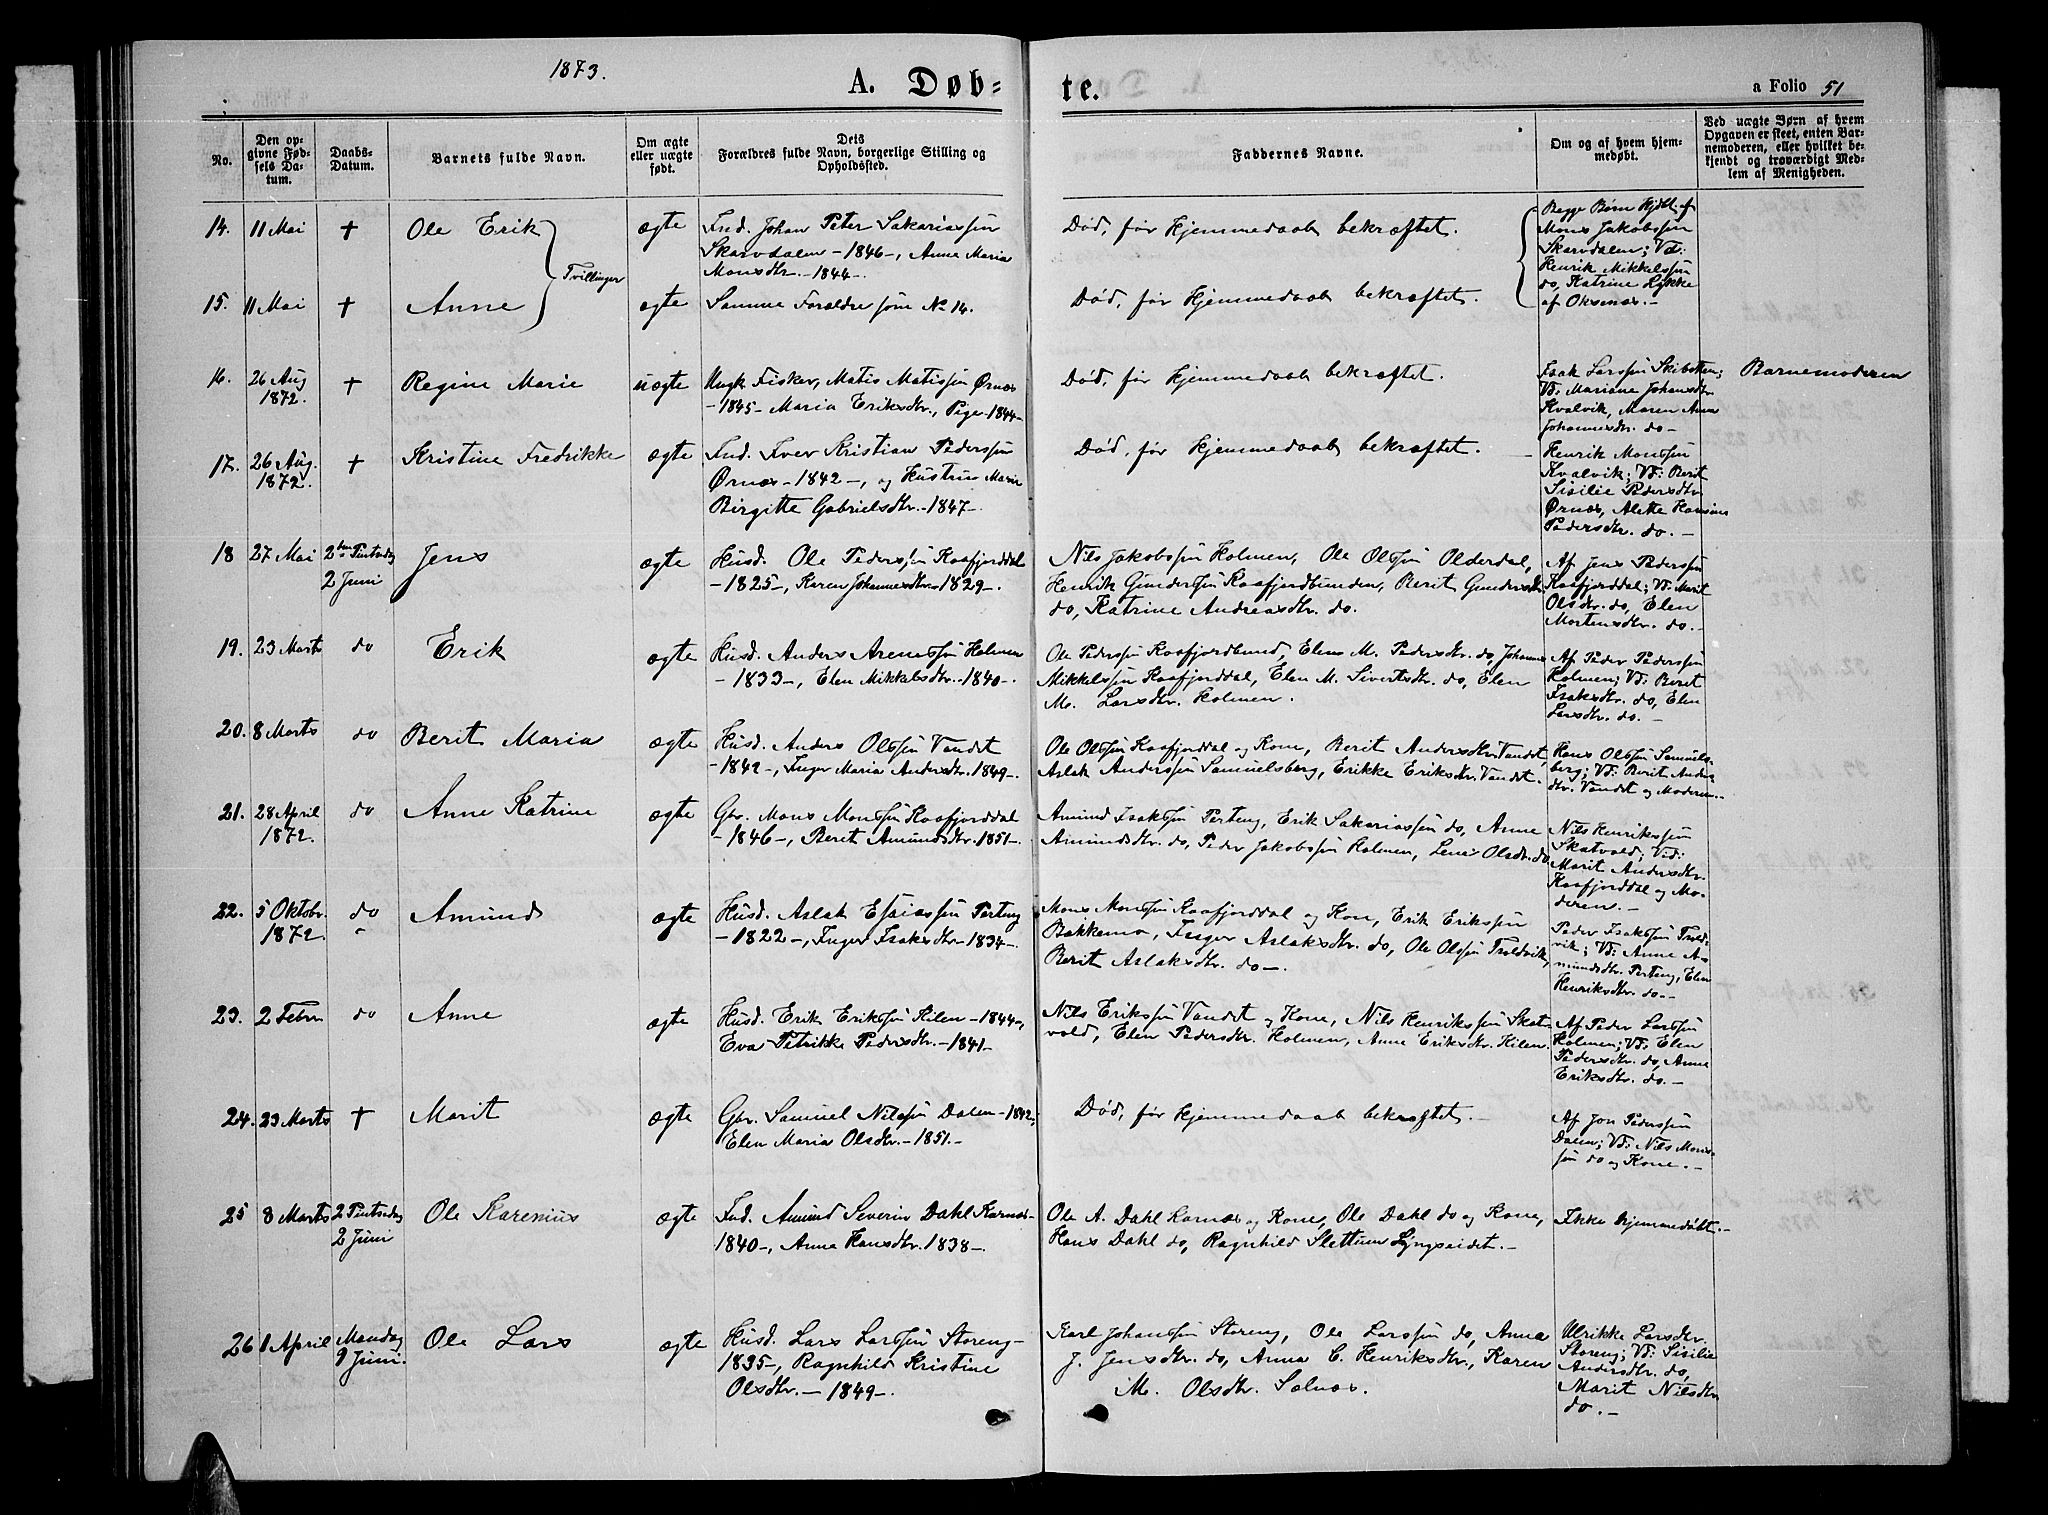 1873.
A. Døb=
te.
a Folio 51
No.
Den op-
givne Fød-
sels Da-
tum.
Daabs-
Datum.
Barnets fulde Navn.
Om ægte
eller uægte
født.
Dets
Forældres fulde Navn, borgerlige Stilling og
Opholdssted.
Faddernes Navne.
Om og af hvem hjem-
medøbt.
Ved uægte Børn af hvem
Opgaven er skeet, enten Bar-
nemoderen, eller hvilket be-
kjendt og troværdigt Med-
lem af Menigheden.
14. 11 Mai † Ole Erik ægte
Tvillinger
Ind. Johan Peter Sakariassøn
Skarvdalen - 1846 -, Anne Maria
Monsdtr. - 1844 -
Død, før Hjemmedaab bekræftet.
Begge Børn Hjdbt. af
Mons Jakobssøn
Skarvdalen; Vd:
Henrik Mikkelssøn
do, Katrine Lykke
af Oksenæs. -
15. 11 Mai † Anne ægte
Samme Forældre som No 14.
Død, før Hjemmedaab bekræftet.
16. 26 Aug
1872. † Regine Marie uægte
Ungk. Fisker, Matis Matissøn Ørnæs
- 1845 - Maria Eriksdtr., Pige - 1844 -
Død, før Hjemmedaab bekræftet.
Isak Larssøn Skibotten;
Vd: Mariane Johansdtr
Kvalvik, Maren Anna
Johannesdtr. do -
Barnemoderen
17. 26 Aug.
1872. † Kristine Fredrikke ægte
Ind. Iver Kristian Pederssøn
Ørnæs - 1842 -, og Hustru Maria
Birgitte Gabrielsdtr. - 1847 -.
Død, før Hjemmedaab bekræftet. -
Henrik Monssøn
Kvalvik; Vd: Berit
Sisilie Pedersdtr.
Ørnæs, Alette Hansine
Pedersdtr. do. -
18 27 Mai 2den Pintsedag
2 Juni Jens ægte
Husd. Ole Pederssøn Kaafjorddal
- 1825 -, Karen Johannesdtr. - 1829 -.
Nils Jakobssøn Holmen, Ole Olssøn Olderdal,
Henrik Gunderssøn Kaafjordbunden, Berit Gundersdtr.
do, Katrine Andreasdtr. do.
Af Jens Pederssøn
Kaafjorddal; Vd: Marit
Olsdtr. do, Elen
Mortensdtr. do. -
19. 23 Marts do Erik ægte
Husd. Anders Arenssøn Holmen
- 1833 -, Elen Mikkelsdtr. - 1840 -.
Ole Pederssøn Kaafjordbund, Elen M. Pedersdtr. do, Johannes
Mikkelssøn Kaafjorddal, Elen M. Sivertsdtr. do, Elen
M. Larsdtr. Holmen.
Af Peder Pederssøn
Holmen; Vd: Berit
Isaksdtr. do, Elen
Larsdtr. do. -
20. 8 Marts do Berit Maria ægte
Husd. Anders Olssøn Vandet
- 1842 -, Inger Maria Andersdtr. 1849 -.
Ole Olssøn Kaafjorddal og Kone, Berit Andersdtr. Vandet,
Aslak Anderssøn Samuelsberg, Erikke Eriksdtr. Vandet.
Hans Olssøn Samuels-
berg; Vd: Berit Anders-
dtr. Vandet og Moderen. -
21. 28 April
1872. do Anne Katrine ægte
Gbr. Mons Monssøn Kaafjorddal
- 1846 -, Berit Amundsdtr. 1851 -.
Amund Isakssøn Perteng, Erik Sakariassøn do, Anne
Amundsdtr. do, Peder Jakobssøn Holmen, Lene Olsdtr. do
Nils Henrikssøn
Skatvold; Vid:
Marit Andersdtr.
Kaafjorddal og Mo-
deren. -
22. 5 Oktobr.
1872. do Amund ægte
Husd. Aslak Esaiassøn Perteng
- 1822 -, Inger Isaksdtr - 1834 -.
Mons Monssøn Kaafjorddal og Kone, Erik Erikssøn
Bakkemo, Inger Aslaksdtr. do, Ole Olssøn Troldvik,
Berit Aslaksdtr. do -.
Peder Isakssøn Trold-
vik; Vd: Anne A-
mundsdtr. Perteng, Elen
Henriksdtr. do. -
23. 2 Febr. do Anne ægte
Husd. Erik Erikssøn Hilen - 1844 -,
Eva Petrikke Pedersdtr. - 1841 -
Nils Erikssøn Vandet og Kone, Nils Henrikssøn Skat-
vold, Elen Pedersdtr. Holmen, Anne Eriksdtr. Hilen.
Af Peder Larssøn
Holmen; Vd: Elen
Pedersdtr. do, Anne
Eriksdtr. do. -
24. 23 Marts † Marit ægte
Gbr. Samuel Nilssøn Dalen - 1842,
Elen Maria Olsdtr. - 1851. -
Død, før Hjemmedaab bekræftet. -
Af Jon Pederssøn
Dalen; Vd: Nils Mons-
søn do og Kone. -
25 8 Marts 2 Pintsedag
2 Juni Ole Karenius ægte
Ind. Amund Severin Dahl Karnæs -
1840 -, Anne Hansdtr. 1838 -.
Ole A. Dahl Karnæs og Kone, Ole Dahl do og Kone,
Hans Dahl do, Ragnhild Slettum Lyngseidet. -
Ikke hjemmedøbt. -
26 1 April Mandag
9 Juni. Ole Lars ægte
Husd. Lars Larssøn Storeng -
1835 -, Ragnhild Kristine
Olsdtr. - 1849 -.
Karl Johanssøn Storeng, Ole Larssøn do, Anna
J. Jensdtr. do, Anna C. Henriksdtr., Karen
M. Olsdtr. Solnæs.
Ulrikke Larsdtr.
Storeng; Vd: Sisilie
Andersdtr. do,
Marit Nilsdtr.
do. -